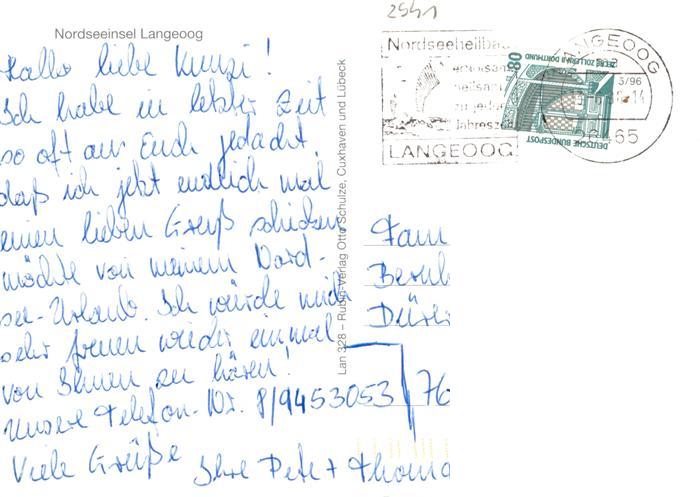 2541
Nordseeinsel Langeoog
Hallo liebe Kunzi!
Ich habe in letzter Zeit
so oft an Euch gedacht,
daß ich jetzt endlich mal
einen lieben Gruß schicken
möchte von meinem Nord-
see-Urlaub. Ich würde mich
sehr freuen wieder einmal
von Ihnen zu hören!
Unsere Telefon-Nr. 8/9453053
Viele Grüße Ihre Pete + Thoma
Lan 328 – Rubin-Verlag Otto Schulze, Cuxhaven und Lübeck
Nordseeheilba
zu jeder
Jahresze
LANGEOOG
80
ZECHE ZOLLERN II DORTMUND
DEUTSCHE BUNDESPOST
LANGEOOG
3/96
14
65
Fam
Bernh
Dürer
76